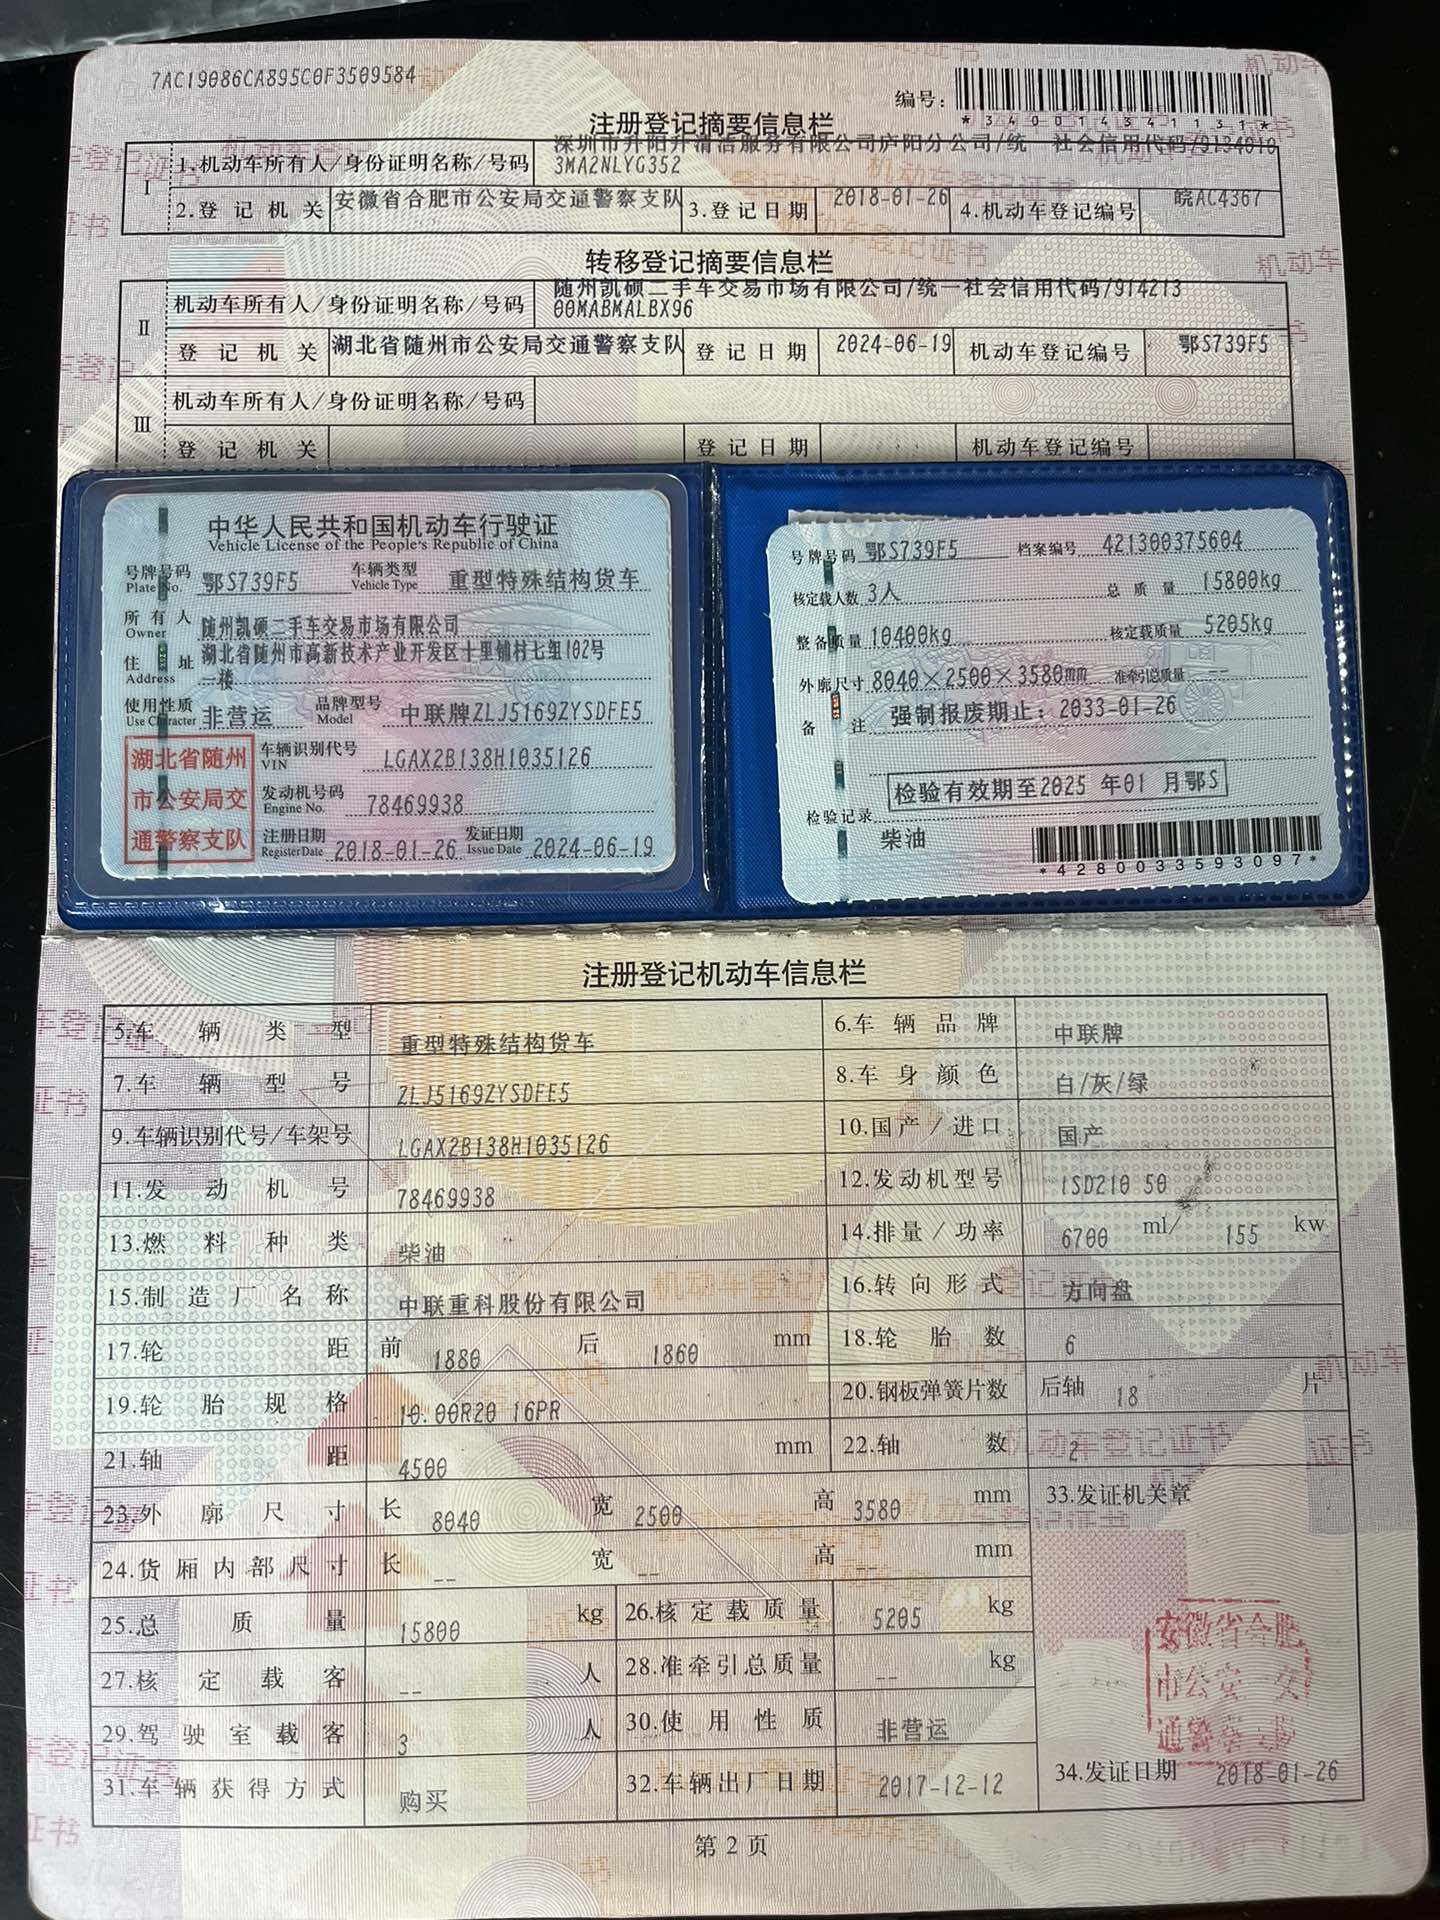 7AC19086CA895C0F3509584
编号:
*340014341131*
注册登记摘要信息栏
I
1.机动车所有人/身份证明名称/号码 深圳市升阳升清洁服务有限公司庐阳分公司/统一社会信用代码/9134010
3MA2NLYG352
2.登记机关 安徽省合肥市公安局交通警察支队 3.登记日期 2018-01-26 4.机动车登记编号 皖AC4367
转移登记摘要信息栏
II
机动车所有人/身份证明名称/号码 随州凯硕二手车交易市场有限公司/统一社会信用代码/914213
00MABMALBX96
登记机关 湖北省随州市公安局交通警察支队 登记日期 2024-06-19 机动车登记编号 鄂S739F5
III
机动车所有人/身份证明名称/号码
登记机关 登记日期 机动车登记编号
中华人民共和国机动车行驶证
Vehicle License of the People's Republic of China
号牌号码 鄂S739F5 车辆类型 重型特殊结构货车
Plate No. Vehicle Type
所有人 随州凯硕二手车交易市场有限公司
Owner
住址 湖北省随州市高新技术产业开发区十里铺村七组102号
Address 一楼
使用性质 非营运 品牌型号 中联牌ZLJ5169ZYSDFE5
Use Character Model
湖北省随州
市公安局交
通警察支队
车辆识别代号 LGAX2B138H1035126
VIN
发动机号码 78469938
Engine No.
注册日期 2018-01-26 发证日期 2024-06-19
Register Date Issue Date
号牌号码 鄂S739F5 档案编号 421300375604
核定载人数 3人 总质量 15800kg
整备质量 10400kg 核定载质量 5205kg
外廓尺寸 8040×2500×3580mm 准牵引总质量 --
备注 强制报废期止:2033-01-26
检验有效期至2025 年01 月鄂S
检验记录
柴油
*4280033593097*
注册登记机动车信息栏
5.车辆类型 重型特殊结构货车 6.车辆品牌 中联牌
7.车辆型号 ZLJ5169ZYSDFE5 8.车身颜色 白/灰/绿
9.车辆识别代号/车架号 LGAX2B138H1035126 10.国产/进口 国产
11.发动机号 78469938 12.发动机型号 ISD210 50
13.燃料种类 柴油 14.排量/功率 6700 ml/ 155 kw
15.制造厂名称 中联重科股份有限公司 16.转向形式 方向盘
17.轮距 前 1880 后 1860 mm 18.轮胎数 6
19.轮胎规格 10.00R20 16PR 20.钢板弹簧片数 后轴 18 片
21.轴距 4500 mm 22.轴数 2
23.外廓尺寸 长 8040 宽 2500 高 3580 mm 33.发证机关章
24.货厢内部尺寸 长 -- 宽 -- 高 -- mm
25.总质量 15800 kg 26.核定载质量 5205 kg
27.核定载客 -- 人 28.准牵引总质量 -- kg
29.驾驶室载客 3 人 30.使用性质 非营运
31.车辆获得方式 购买 32.车辆出厂日期 2017-12-12 34.发证日期 2018-01-26
安徽省合肥
市公安
通警察支队
第 2 页